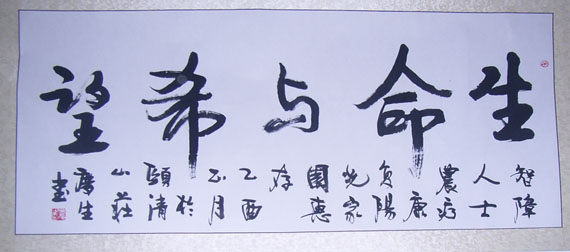 生命与希望
智障
人士
農疗
康
复陽
光家
園惠
存
乙酉
正月
於
頤清
山莊
生
書